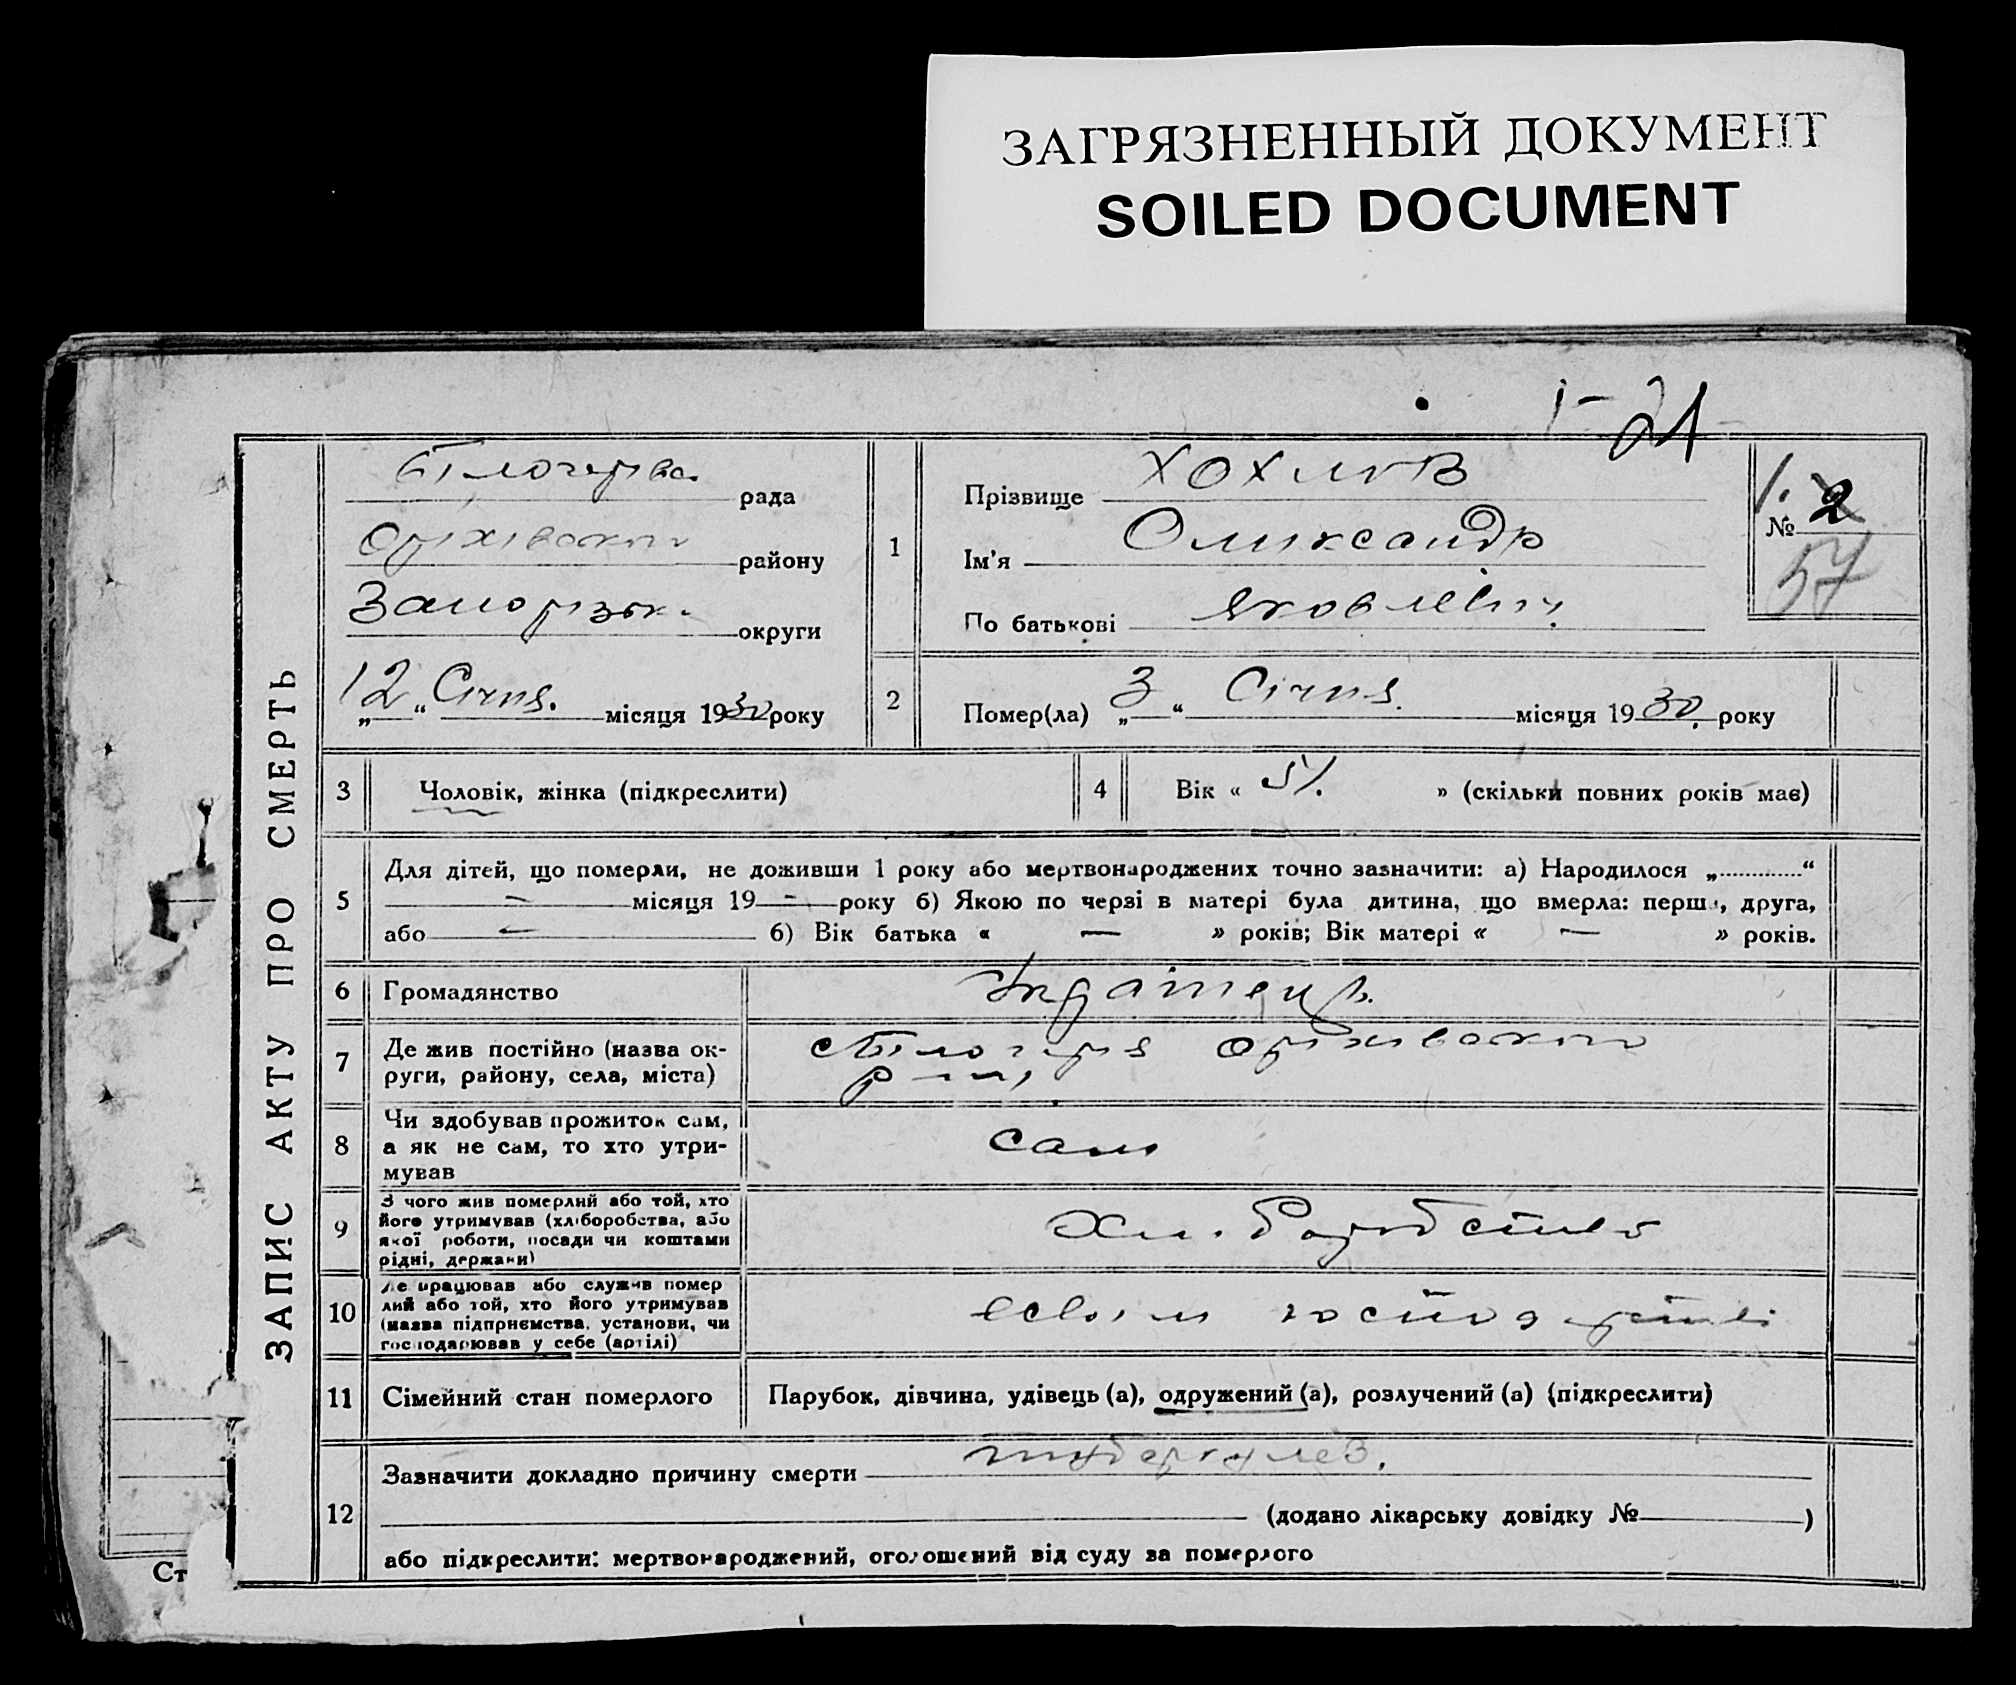 ЗАГРЯЗНЕННЫЙ ДОКУМЕНТ
SOILED DOCUMENT
1- 21
ЗАПИС АКТУ ПРО СМЕРТЬ
рада
Оріхівського району
Запорізьк. округи
„12“ Січня. місяця 1930 року
1
Прізвище Хохлов
Ім'я Олександр
По батькові Яковлевич
1. № 2
57
2
Помер(ла) „3“ Січня. місяця 1930. року
3 Чоловік, жінка (підкреслити)
4 Вік « 51. » (скільки повних років має)
5 Для дітей, що померли, не доживши 1 року або мертвонароджених точно зазначити: а) Народилося „ “
— місяця 19 — року б) Якою по черзі в матері була дитина, що вмерла: перша, друга,
або — б) Вік батька « — » років; Вік матері « — » років.
6 Громадянство
7 Де жив постійно (назва ок-
руги, району, села, міста)
Оріхівського
8 Чи здобував прожиток сам,
а як не сам, то хто утри-
мував
сам
9 З чого жив померлий або той, хто
його утримував (хліборобства, або
якої роботи, посади чи коштами
рідні, держави)
Хл.боробство
10 Де працював або служив помер
лий або той, хто його утримував
(назва підприємства, установи, чи
господарював у себе (артілі)
в своім
11 Сімейний стан померлого
Парубок, дівчина, удівець (а), одружений (а), розлучений (а) (підкреслити)
12 Зазначити докладно причину смерти туберкулез.
(додано лікарську довідку № )
або підкреслити: мертвонароджений, оголошений від суду за померлого
Ст